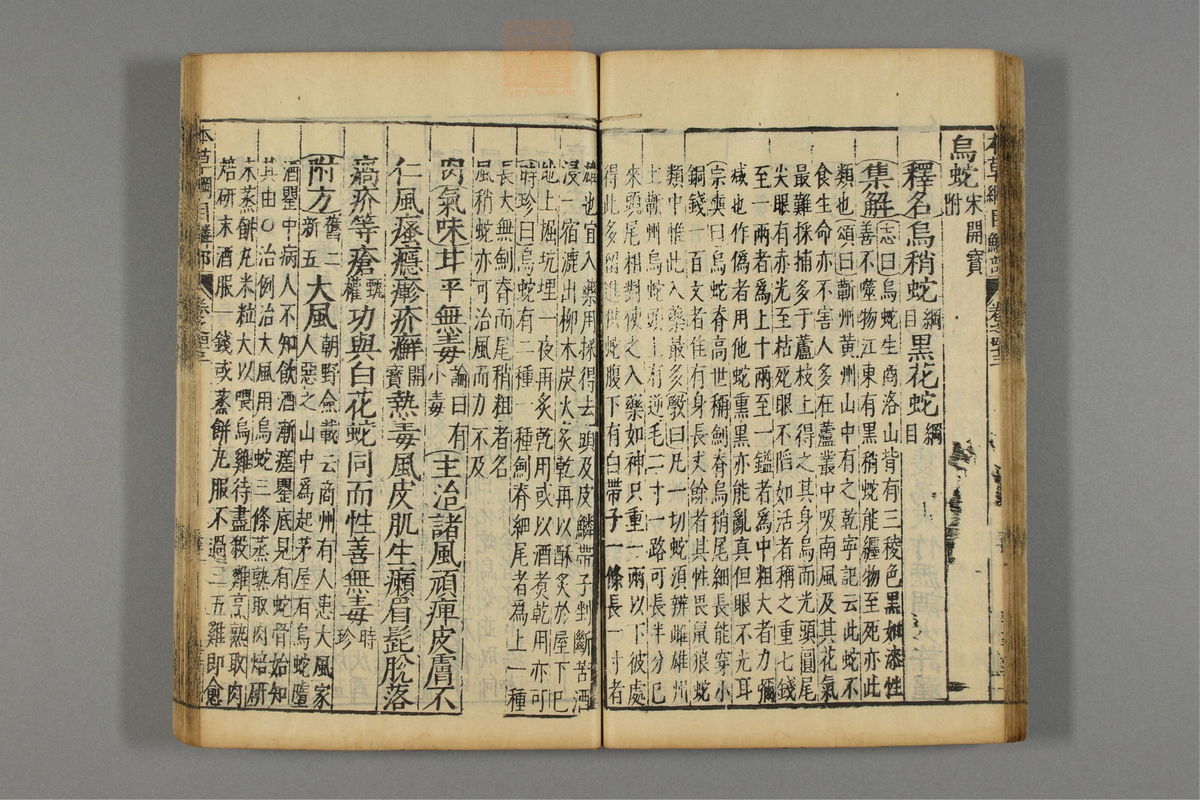 本草綱目鱗部 卷之四十三
烏蛇宋開寶附
釋名烏稍蛇綱目黑花蛇綱目
集解志曰烏蛇生商洛山背有三稜色黑如漆性
善不噬物江東有黑稍蛇能纏物至死亦此
類也頌曰蘄州黄州山中有之乾寧記云此蛇不
食生命亦不害人多在蘆叢中吸南風及其花氣
最難採捕多于蘆枝上得之其身烏而光頭圓尾
尖眼有赤光至枯死眼不陷如活者稱之重七錢
至一兩者爲上十兩至一鎰者爲中粗大者力彌
減也作僞者用他蛇熏黑亦能亂真但眼不光耳
宗奭曰烏蛇脊高世稱劍脊烏稍尾細長能穿小
銅錢一百文者佳有身長丈餘者其性畏鼠狼蛇
類中惟此入藥最多斅曰凡一切蛇須辨雌雄州
土蘄州烏蛇頭上有逆毛二寸一路可長半分已
來頭尾相對使之入藥如神只重一兩以下彼處
得此多留進供蛇腹下有白帶子一條長一寸者
雄也宜入藥用採得去頭及皮鱗帶子剉斷苦酒
浸一宿漉出柳木炭火炙乾再以酥炙於屋下巳
地上掘坑埋一夜再炙乾用或以酒煮乾用亦可
時珍曰烏蛇有二種一種劍脊細尾者爲上一種
長大無劍脊而尾稍粗者名
風稍蛇亦可治風而力不及
肉氣味甘平無毒論曰有小毒主治諸風頑痺皮膚不
仁風瘙癮疹疥癬開寶熱毒風皮肌生癩眉髭脫落
㾏疥等瘡甄權功與白花蛇同而性善無毒時珍
附方舊二新五大風朝野僉載云商州有人患大風家人惡之山中爲起茅屋有烏蛇墮
酒罌中病人不知飲酒漸瘥罌底見有蛇骨始知
其由○治例治大風用烏蛇三條蒸熟取肉焙研
末蒸餅丸米粒大以喂烏雞待盡殺雞烹熟取肉
焙研末酒服一錢或蒸餅丸服不過三五雞即愈
本草綱目鱗部 卷之四十三